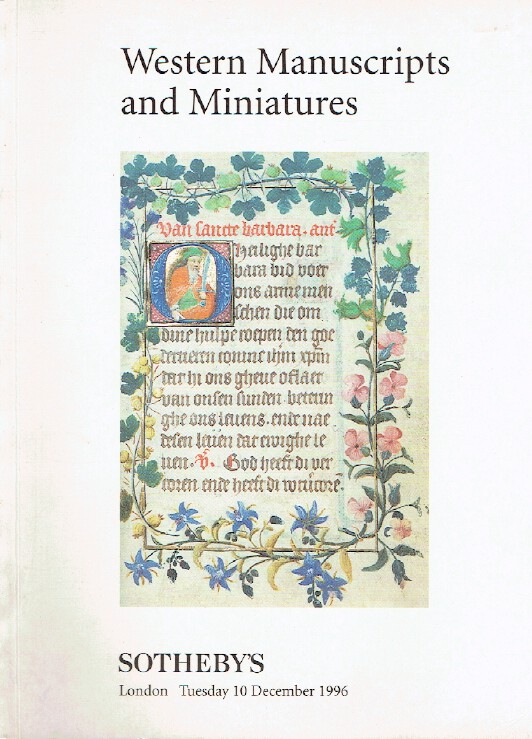 Western Manuscripts
and Miniatures
Van sancte barbara. ant
O heilighe bar
bara bid voer
ons arme men
schen die om
dine hulpe roepen den goe
dertieren
dat hi ons gheue oflaet
van onsen sunden. beterin
ghe ons leuens. ende nae
desen leuen dat ewighe le
uen. V. God heeft di ver
coren ende heeft di
SOTHEBY'S
London Tuesday 10 December 1996